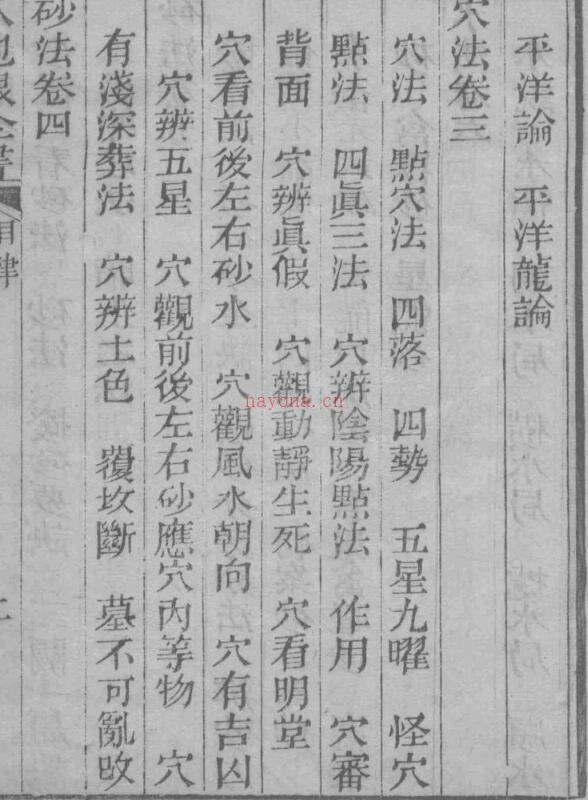 平洋論　平洋龍論
穴法卷三
穴法　點穴法　四落　四勢　五星九曜　怪穴
點法　四眞三法　穴辨陰陽點法　作用　穴審
背面　穴辨眞假　穴觀動靜生死　穴看明堂
穴看前後左右砂水　穴觀風水朝向　穴有吉凶
穴辨五星　穴觀前後左右砂應穴內等物　穴
有淺深葬法　穴辨土色　覆坟斷　墓不可亂改
砂法卷四
目錄
hayona.cn